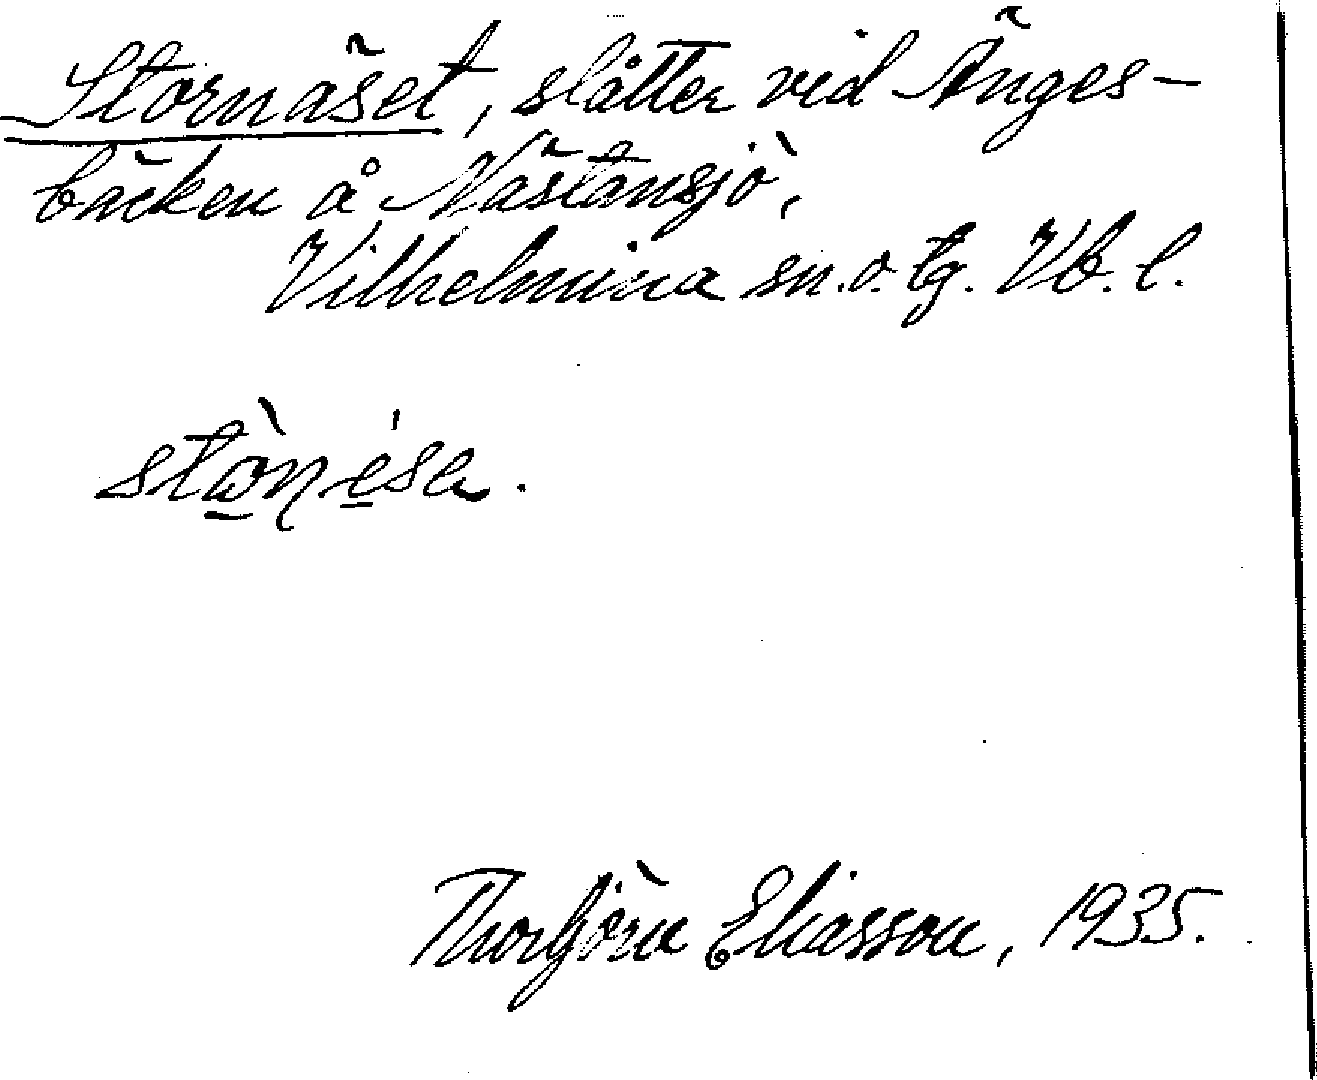 Stornäset, slåtter vid Änges-
bäcken å Nästansjö,
Vilhelmina sn. o. tg. Vb. l.
Thorbjörn Eliasson, 1935.